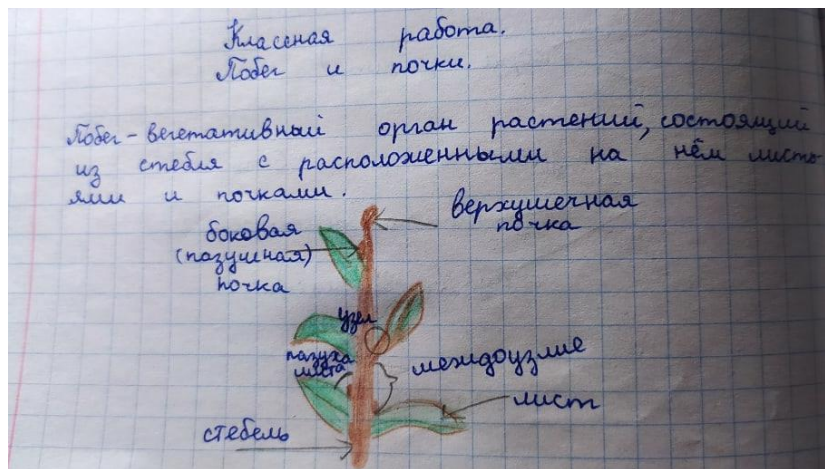 Классная работа.
Побег и почки.
Побег - вегетативный орган растений, состоящий
из стебля с расположенными на нём листь-
ями и почками.
верхушечная
почка
боковая
(пазушная)
почка
узел
пазуха
листа
междоузлие
лист
стебель